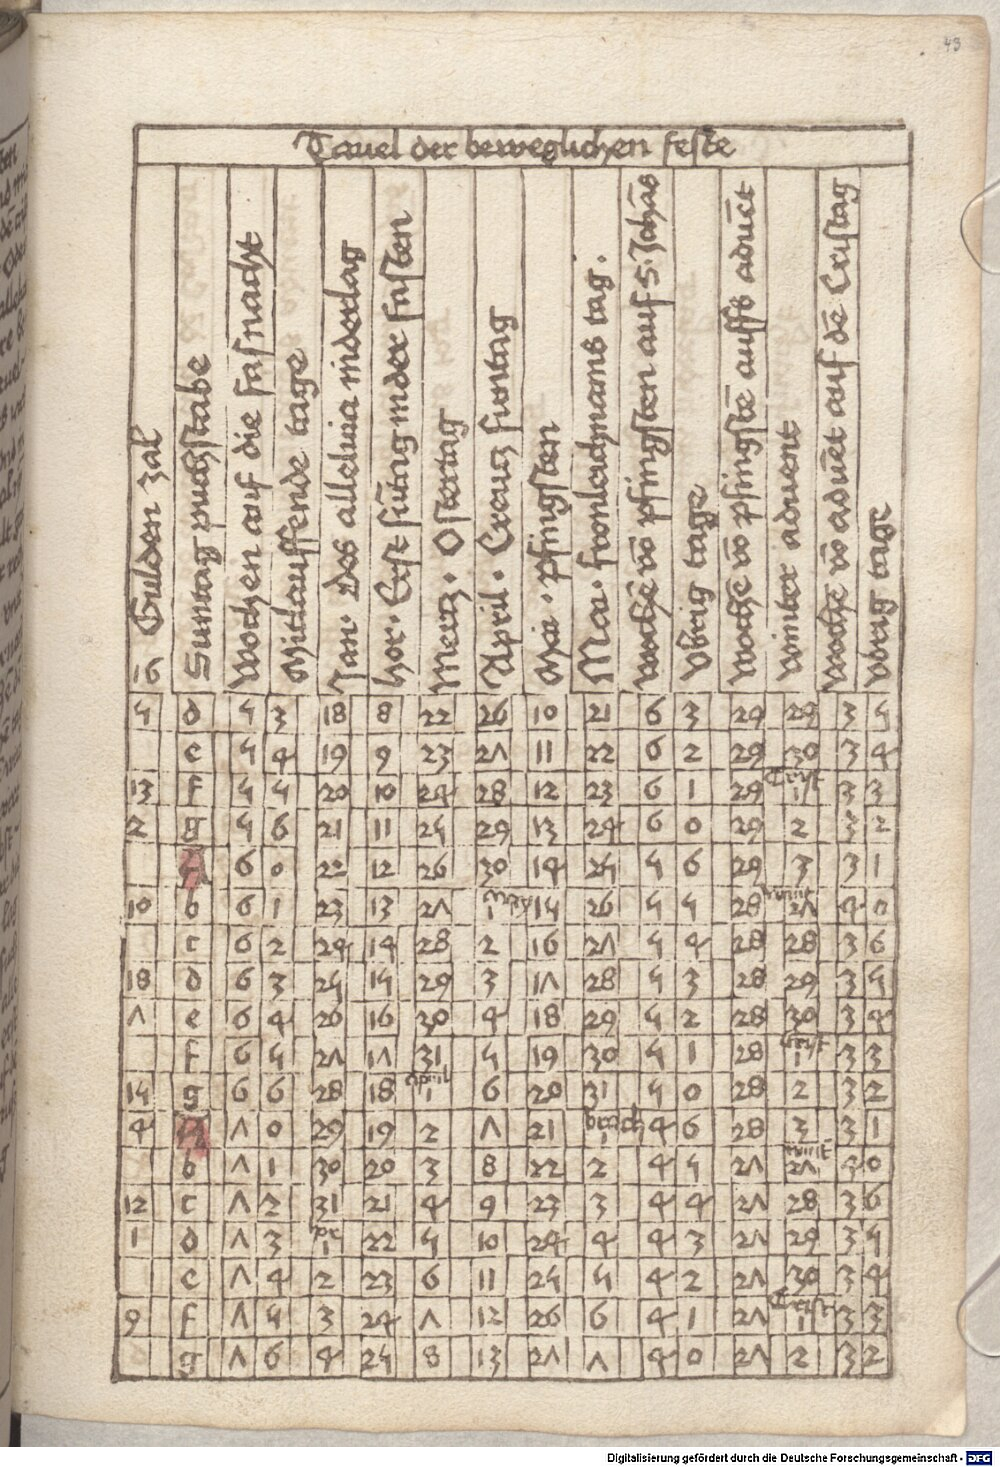 43
Tauel der beweglichen feste
Gulden zal
Suntag puchstabe
Wochen auf die fasnacht
Mitlauffende tage
Jan. Das alleluia niderlag
Hor. Erst sūtag in der fasten
Mertz. Ostertag
April. Creutz suntag
Mai. pfingsten
Mai. fronleichnams tag.
Wochē vō pfingsten auf S. Johās
Vbrig tage
Wochē vō pfingstē auffs aduēt
Winter aduent
Wochē vō aduēt auf dē Cristag
Vbrig tage
5 d 5 3 18 8 22 26 10 21 6 3 29 29 3 5
e 5 4 19 9 23 27 11 22 6 2 29 30 3 4
13 f 5 5 20 10 24 28 12 23 6 1 29 Crist 1 3 3
2 g 5 6 21 11 25 29 13 24 6 0 29 2 3 2
A 6 0 22 12 26 30 14 25 5 6 29 3 3 1
10 b 6 1 23 13 27 May 1 15 26 5 5 28 wint 27 4 0
c 6 2 24 14 28 2 16 27 5 4 28 28 3 6
18 d 6 3 25 15 29 3 17 28 5 3 28 29 3 5
7 e 6 4 26 16 30 4 18 29 5 2 28 30 3 4
f 6 5 27 17 31 5 19 30 5 1 28 Crist 1 3 3
15 g 6 6 28 18 April 1 6 20 31 5 0 28 2 3 2
4 A 7 0 29 19 2 7 21 brach 1 4 6 28 3 3 1
b 7 1 30 20 3 8 22 2 4 5 27 wint 27 4 0
12 c 7 2 31 21 4 9 23 3 4 4 27 28 3 6
1 d 7 3 hor 1 22 5 10 24 4 4 3 27 29 3 5
e 7 4 2 23 6 11 25 5 4 2 27 30 3 4
9 f 7 5 3 24 7 12 26 6 4 1 27 Crist 1 3 3
g 7 6 4 25 8 13 27 7 4 0 27 2 3 2
Digitalisierung gefördert durch die Deutsche Forschungsgemeinschaft - DFG